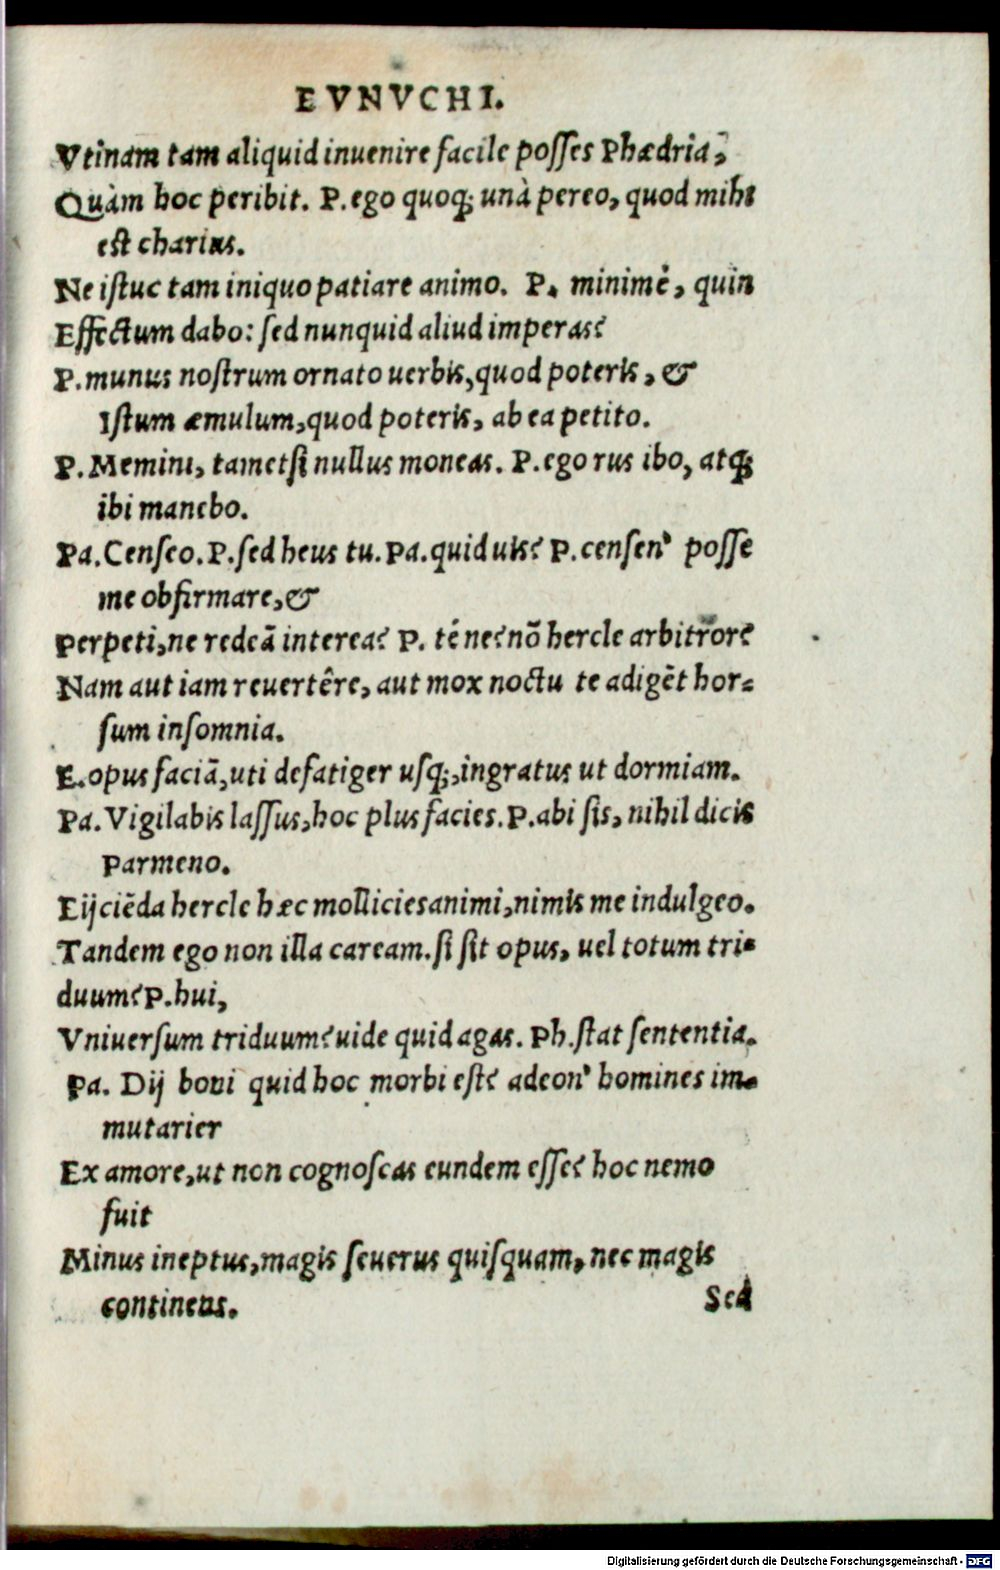 EVNVCHI.
Vtinam tam aliquid inuenire facile posses Phædria,
Quàm hoc peribit. P. ego quoq; unà pereo, quod mihi
est charius.
Ne istuc tam iniquo patiare animo. P. minimè, quin
Effectum dabo: sed nunquid aliud imperas?
P. munus nostrum ornato uerbis, quod poteris, &
Istum æmulum, quod poteris, ab ea petito.
P. Memini, tametsi nullus moneas. P. ego rus ibo, atq;
ibi manebo.
Pa. Censeo. P. sed heus tu. Pa. quid uis? P. censen' posse
me obfirmare, &
Perpeti, ne redeā interea? P. té ne? nō hercle arbitror?
Nam aut iam reuertêre, aut mox noctu te adigēt hor=
sum insomnia.
E. opus faciā, uti defatiger usq;, ingratus ut dormiam.
Pa. Vigilabis lassus, hoc plus facies. P. abi sis, nihil dicis
Parmeno.
Eijciēda hercle hæc mollicies animi, nimis me indulgeo.
Tandem ego non illa caream. si sit opus, uel totum tri=
duum? P. hui,
Vniuersum triduum? uide quid agas. Ph. stat sententia.
Pa. Dij boni quid hoc morbi est? adeon' homines im=
mutarier
Ex amore, ut non cognoscas eundem esse? hoc nemo
fuit
Minus ineptus, magis seuerus quisquam, nec magis
continens.
Sed
Digitalisierung gefördert durch die Deutsche Forschungsgemeinschaft - DFG